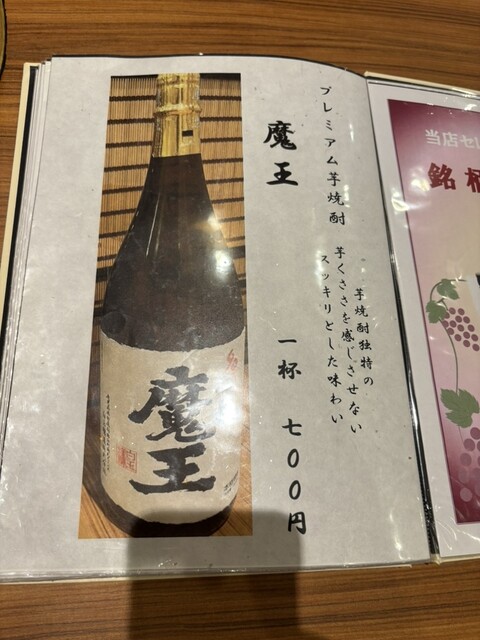 プレミアム芋焼酎
芋焼酎独特の
芋くささを感じさせない
スッキリとした味わい
魔王
一杯 七〇〇円
魔王
当店セレ
銘柄